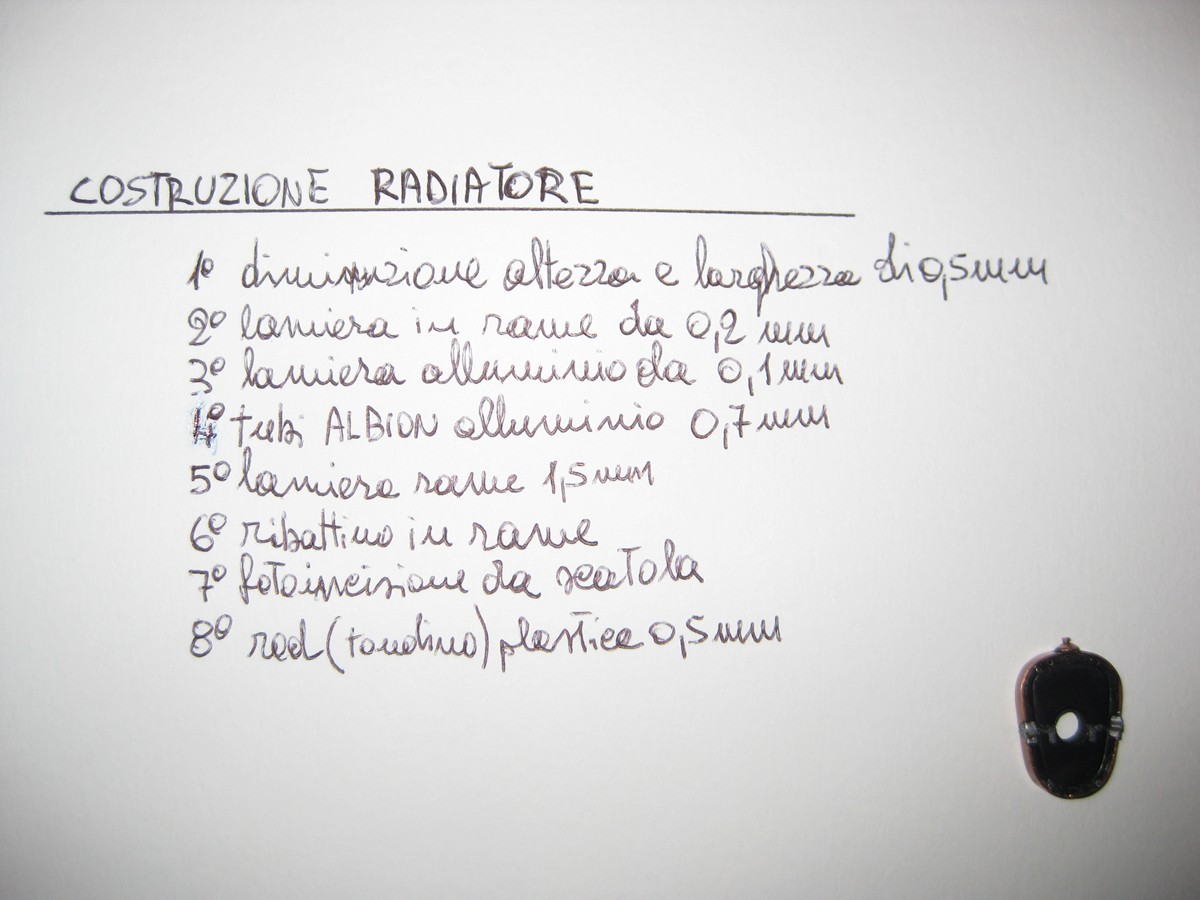 COSTRUZIONE RADIATORE
1º diminuzione altezza e larghezza di 0,5mm
2º lamiera in rame da 0,2 mm
3º lamiera alluminio da 0,1mm
4º tubi ALBION alluminio 0,7mm
5º lamiera rame 1,5mm
6º ribattino in rame
7º fotoincisione da scatola
8º rod (tondino) plastica 0,5mm